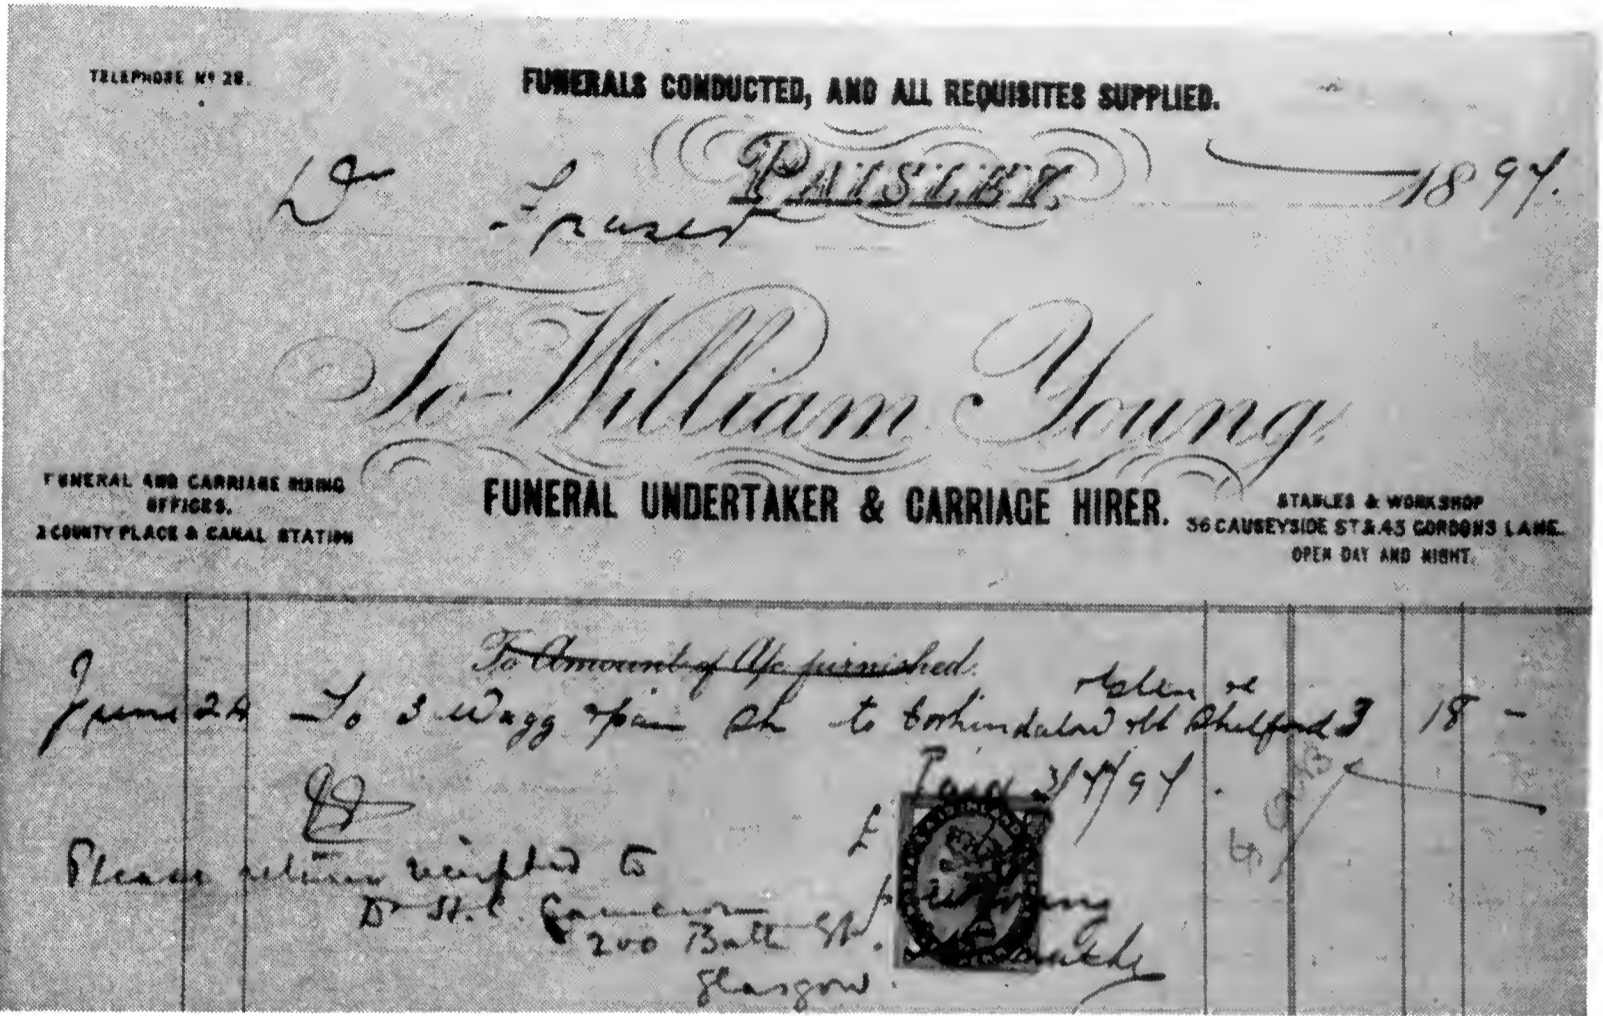 TELEPHONE Nº 28.
FUNERALS CONDUCTED, AND ALL REQUISITES SUPPLIED.
PAISLEY, 1897.
Dr Fraser
To William Young,
FUNERAL AND CARRIAGE HIRING
OFFICES.
2 COUNTY PLACE & CANAL STATION
FUNERAL UNDERTAKER & CARRIAGE HIRER.
STABLES & WORKSHOP
56 CAUSEYSIDE ST & 43 GORDONS LANE.
OPEN DAY AND NIGHT.
To Amount of A/c furnished.
June 24 To 3 Wagg pair to 3 18 -
Paid 3/7/97
£
Please return receipted to
Dr H. C. Cameron
200 Bath St.
Glasgow.